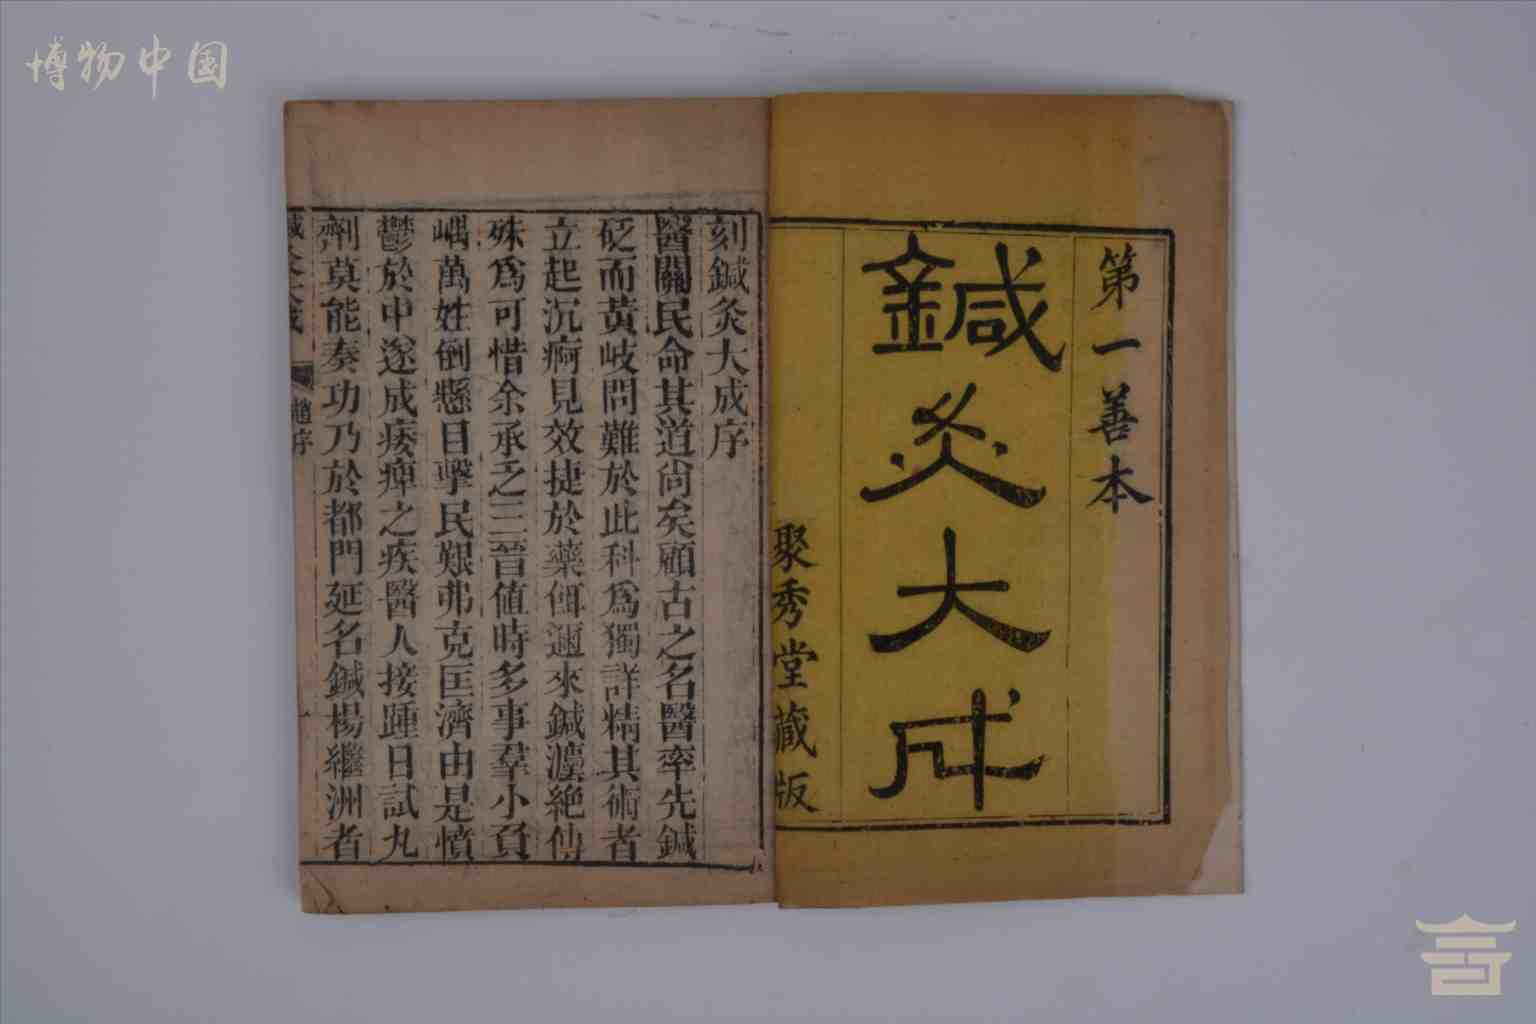 博物中国
第一善本
鍼灸大成
聚秀堂藏版
刻鍼灸大成序
醫關民命其道尚矣顧古之名醫率先鍼
砭而黃岐問難於此科爲獨詳精其術者
立起沉痾見效捷於藥餌邇來鍼灋絶傳
殊爲可惜余承乏三晉值時多事羣小負
嵎萬姓倒懸目擊民艱弗克匡濟由是憤
鬱於中遂成痿痺之疾醫人接踵日試丸
劑莫能奏功乃於都門延名鍼楊繼洲者
趙序